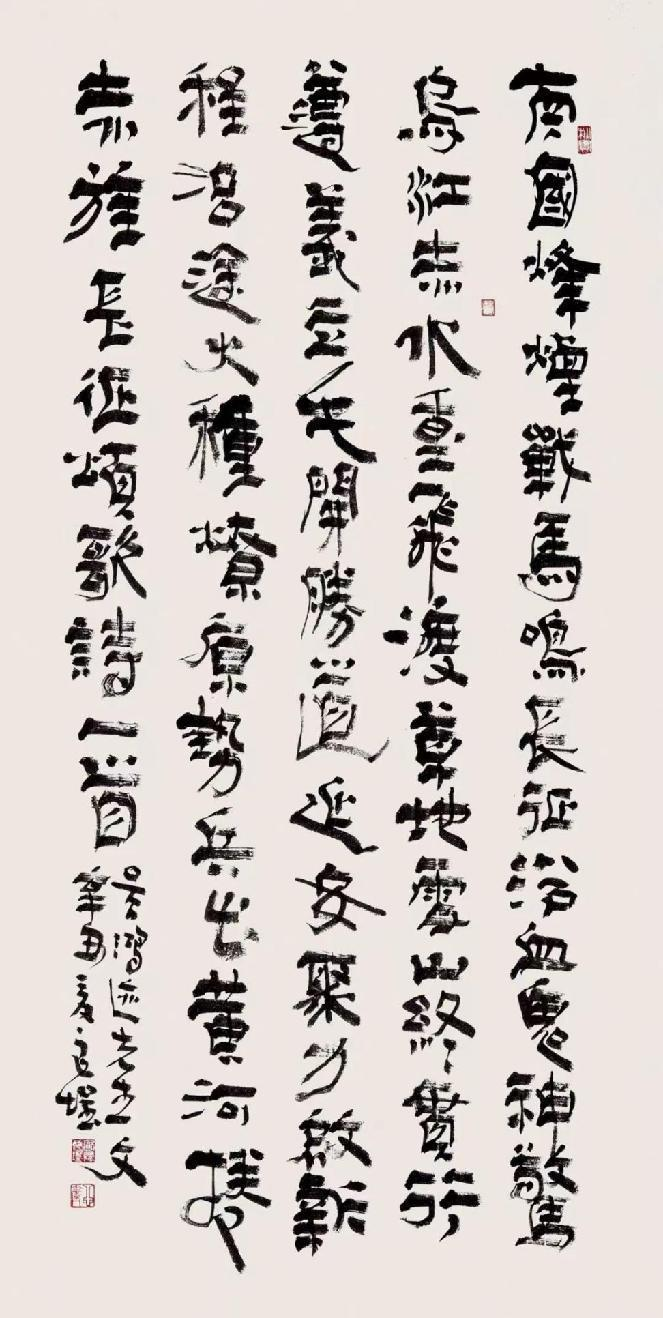 南國烽煙戰馬鳴長征浴血鬼神驚
烏江赤水重飛渡草地雪山終貫行
遵義開勝道延安聚力啟新
程沿途火種燎原勢兵出黃河
赤旌長征頌歌詩一首
文
辛丑夏